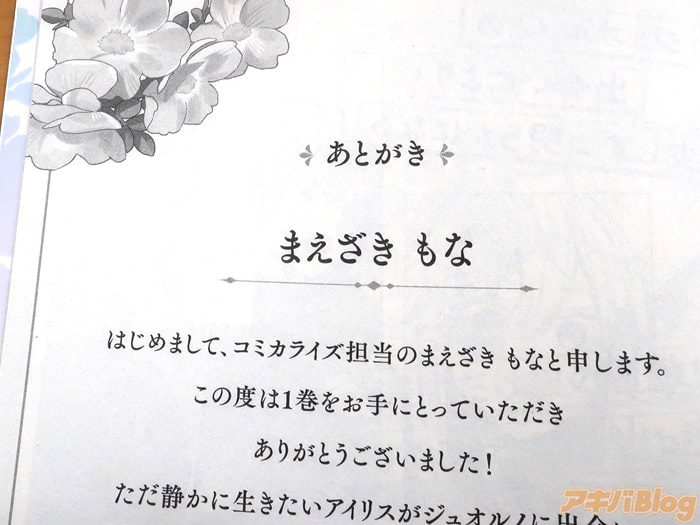 あとがき
まえざき もな
はじめまして、コミカライズ担当のまえざき もなと申します。
この度は1巻をお手にとっていただき
ありがとうございました!
ただ静かに生きたいアイリスがジュオルノに出会
アキバBlog